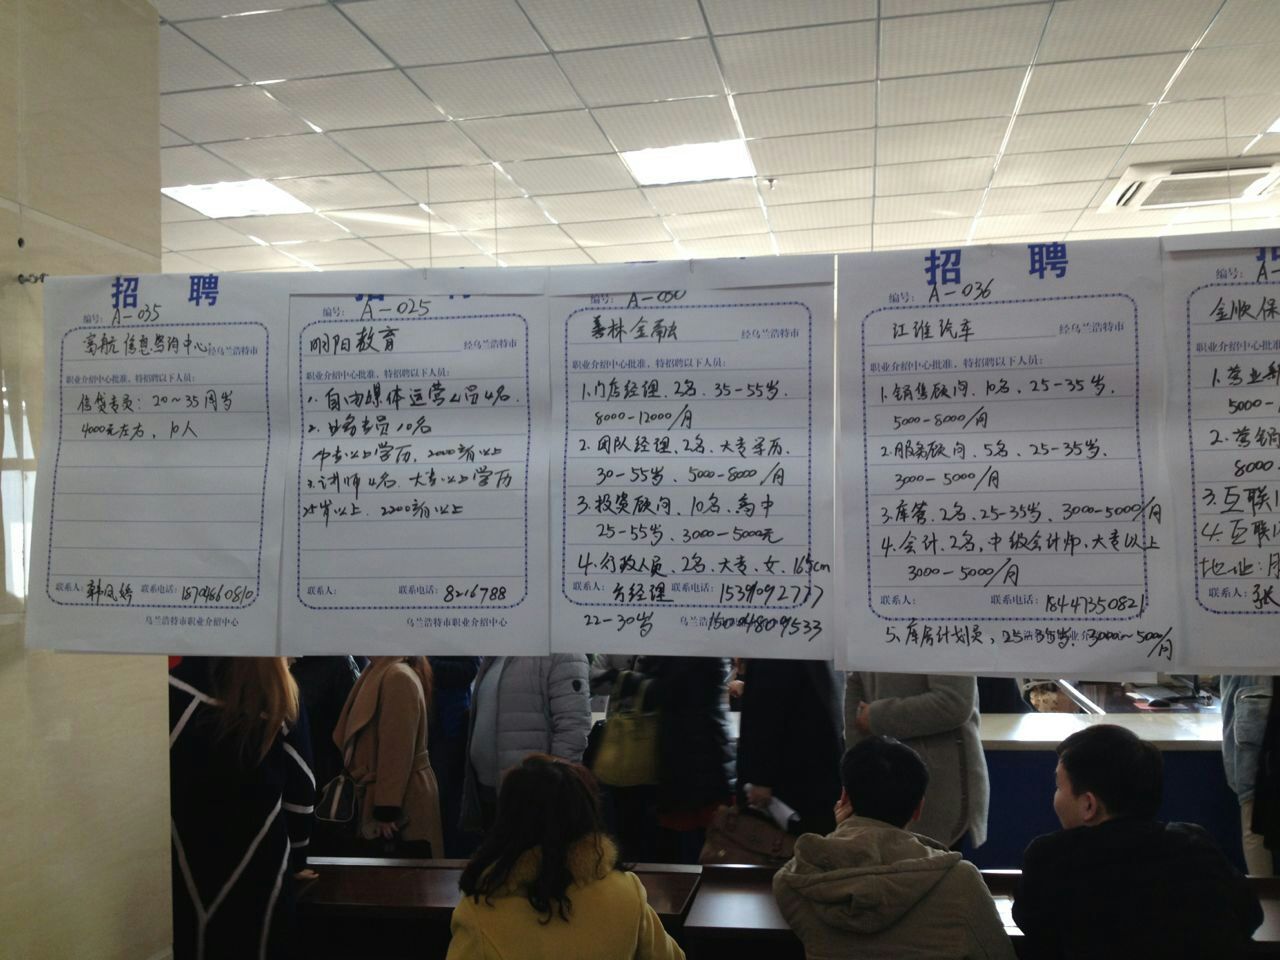 招 聘
编号: A-035
高航信息咨询中心 经乌兰浩特市
职业介绍中心批准，特招聘以下人员:
信贷专员: 20~35周岁
4000元左右、10人
联系人: 联系电话:
乌兰浩特市职业介绍中心
A-025
明阳教育 经乌兰浩特市
职业介绍中心批准，特招聘以下人员:
1. 自由媒体运营人员4名.
2. 业务专员10名
中专以上学历. 2000薪以上
3. 讲师4名. 大专以上学历
25岁以上. 2200薪以上
联系人: 联系电话: 8216788
乌兰浩特市职业介绍中心
编号:
善林金融 经乌兰浩特市
职业介绍中心批准，特招聘以下人员:
1.门店经理、2名、35-55岁、
8000-12000/月
2.团队经理、2名、大专学历、
30-55岁、5000-8000/月
3.投资顾问、10名、高中
25-55岁、3000-5000元
4.行政人员、2名、大专、女、165cm
联系人: 方经理 联系电话: 15391092777
22-30岁 15048009533
招 聘
编号: A-036
江淮汽车 经乌兰浩特市
职业介绍中心批准，特招聘以下人员:
1.销售顾问、10名、25-35岁、
5000-8000/月
2.服务顾问、5名、25-35岁、
3000-5000/月
3.库管、2名、25-35岁、3000-5000/月
4.会计、2名、中级会计师、大专以上
3000-5000/月
联系人: 联系电话: 18447350821
5、库房计划员，25-35岁、3000-5000/月
编号: A
金顺保
职业介绍中心批准，特招
1.营业
5000-
2.营销
8000
3.互联
4.互联
地址:
联系人: 张